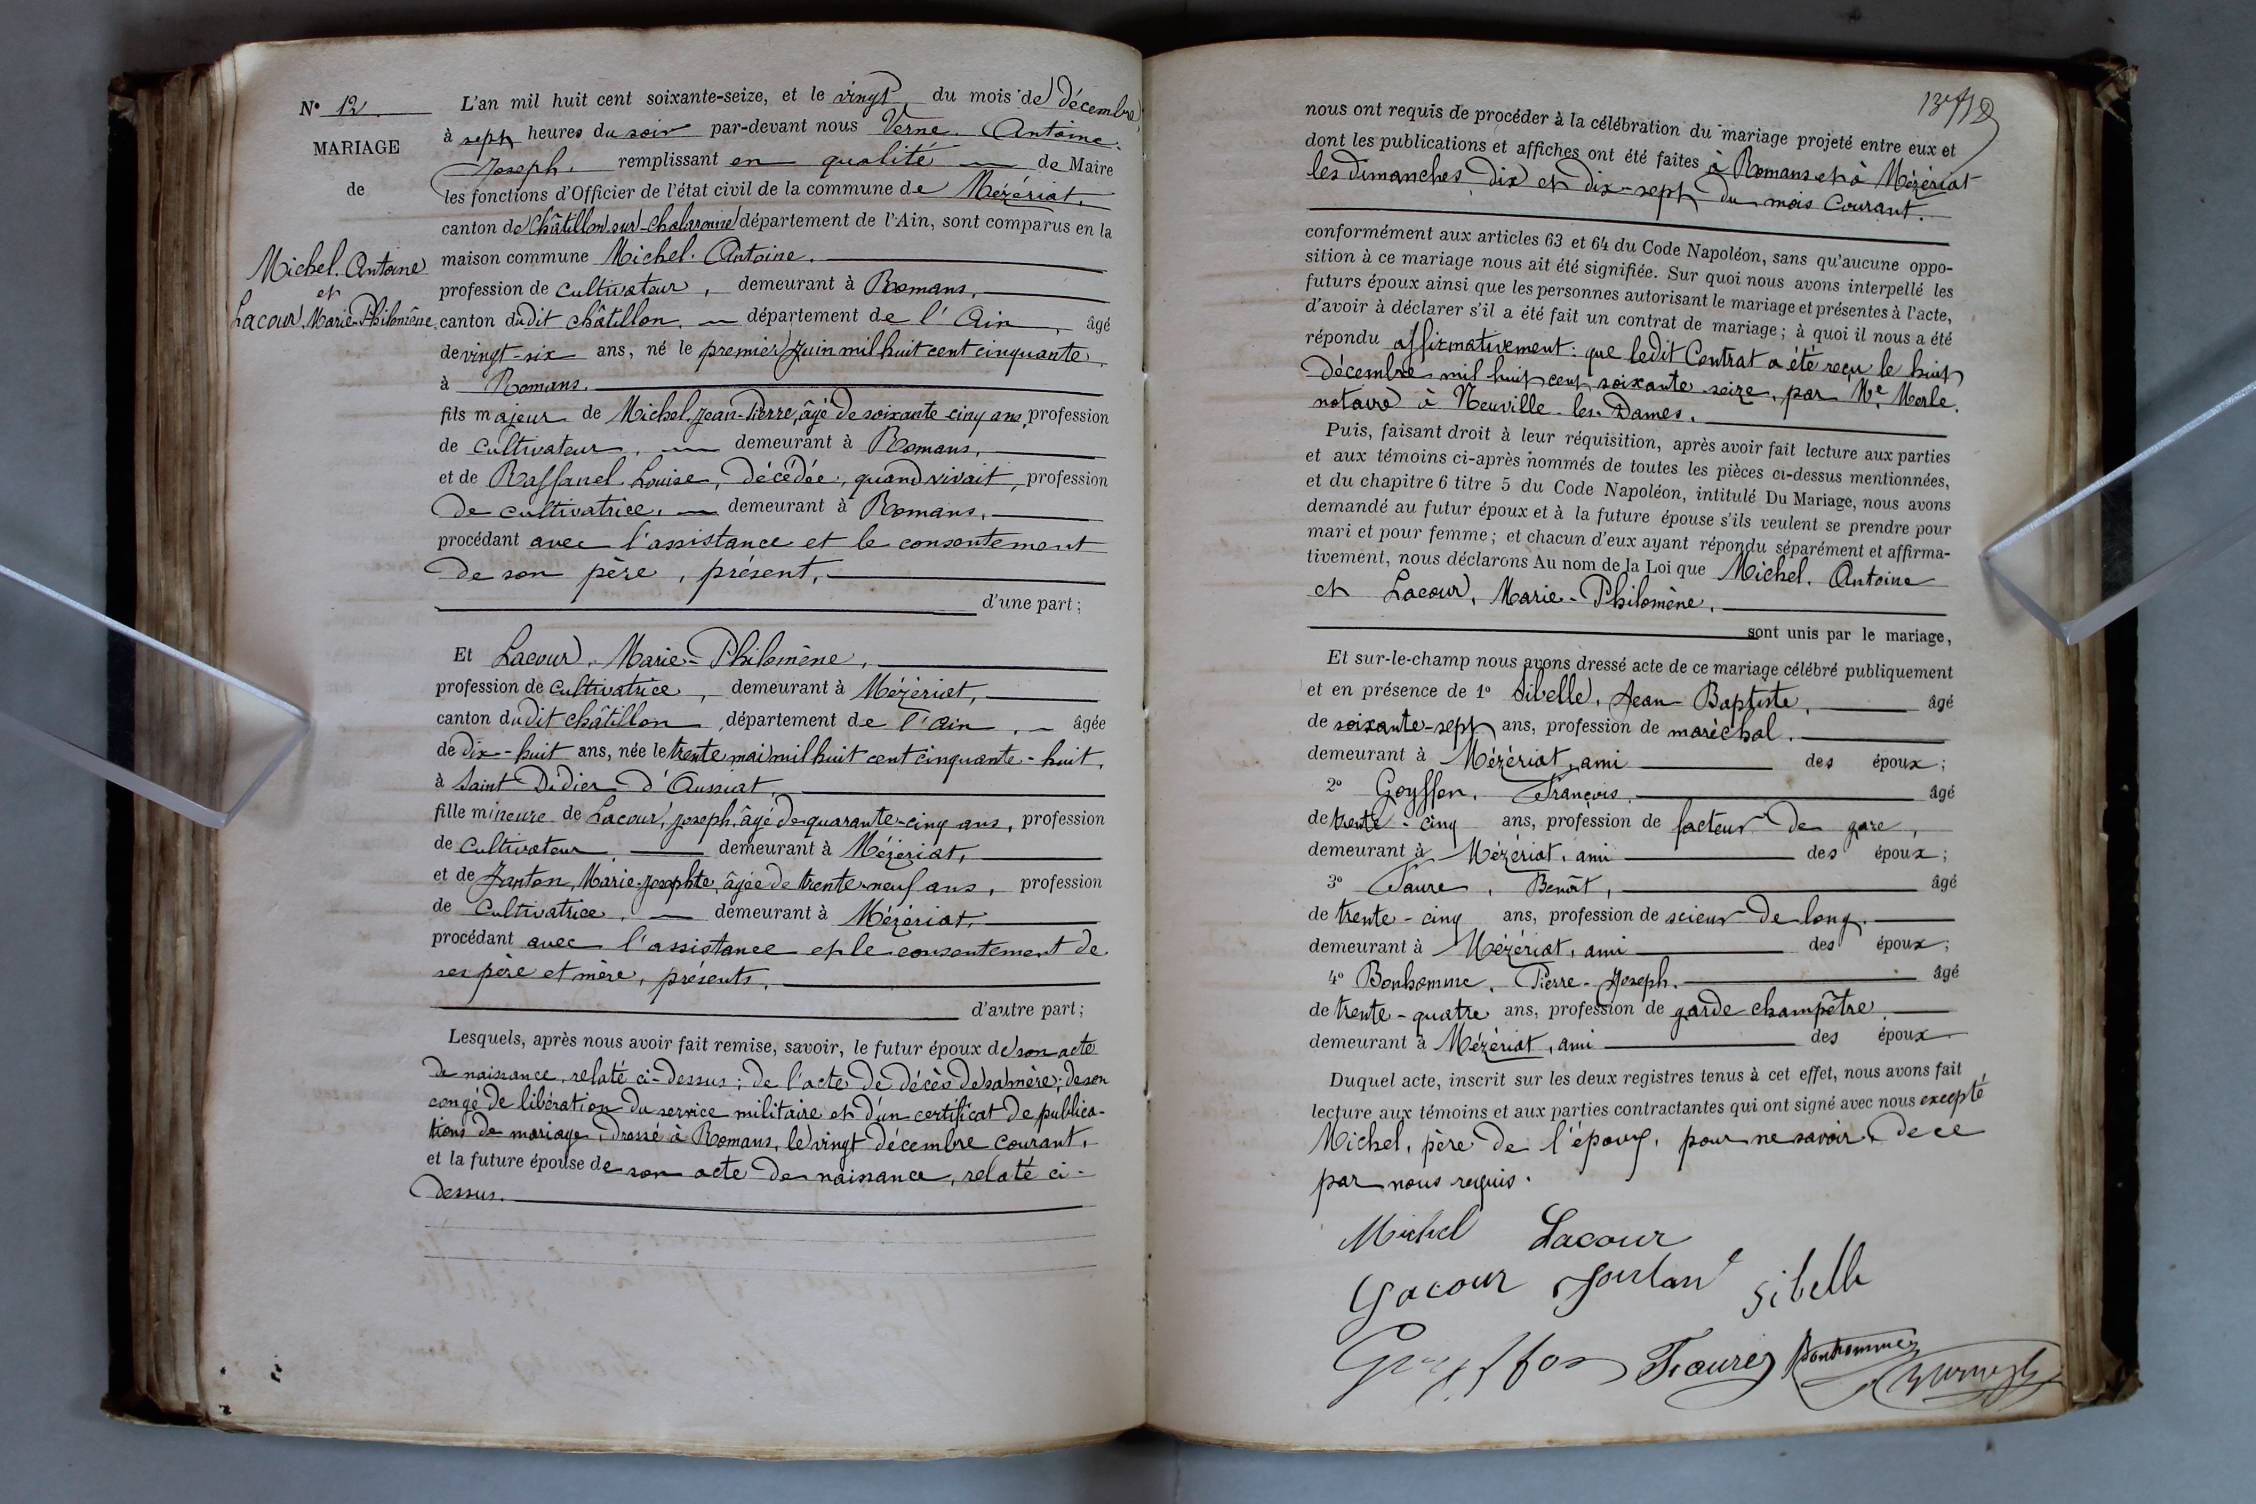 N° 12.
MARIAGE
de
Michel. Antoine
et
Lacour, Marie-Philomène,
L'an mil huit cent soixante-seize, et le vingt du mois de décembre
à sept heures du soir par-devant nous Verne. Antoine.
Joseph, remplissant en qualité de Maire
les fonctions d'Officier de l'état civil de la commune de Mézériat,
canton de Châtillon-sur-Chalaronne département de l'Ain, sont comparus en la
maison commune Michel. Antoine.
profession de cultivateur, demeurant à Romans,
canton dudit châtillon, département de l'Ain, âgé
de vingt-six ans, né le premier Juin mil huit cent cinquante,
à Romans.
fils majeur de Michel, Jean-Pierre, âgé de soixante-cinq ans, profession
de cultivateur, demeurant à Romans,
et de Raffanel Louise, décédée, quand vivait, profession
de cultivatrice, demeurant à Romans,
procédant avec l'assistance et le consentement
de son père, présent,
d'une part ;
Et Lacour, Marie-Philomène,
profession de cultivatrice, demeurant à Mézériat,
canton dudit châtillon département de l'ain, âgée
de dix-huit ans, née le trente mai mil huit cent cinquante-huit,
à Saint Didier d'Aussiat,
fille mineure de Lacour, Joseph, âgé de quarante-cinq ans, profession
de cultivateur, demeurant à Mézériat,
et de Janton, Marie-Josephte, âgée de trente-neuf ans, profession
de cultivatrice, demeurant à Mézériat,
procédant avec l'assistance et le consentement de
ses père et mère, présents,
d'autre part ;
Lesquels, après nous avoir fait remise, savoir, le futur époux de son acte
de naissance, relaté ci-dessus ; de l'acte de décès de sa mère ; de son
congé de libération du service militaire et d'un certificat de publica-
tions de mariage, dressé à Romans, le vingt décembre courant,
et la future épouse de son acte de naissance, relaté ci-
dessus.
nous ont requis de procéder à la célébration du mariage projeté entre eux et
dont les publications et affiches ont été faites à Romans et à Mézériat
les dimanches dix et dix-sept du mois courant.
conformément aux articles 63 et 64 du Code Napoléon, sans qu'aucune oppo-
sition à ce mariage nous ait été signifiée. Sur quoi nous avons interpellé les
futurs époux ainsi que les personnes autorisant le mariage et présentes à l'acte,
d'avoir à déclarer s'il a été fait un contrat de mariage ; à quoi il nous a été
répondu affirmativement : que ledit Contrat a été reçu le huit
décembre mil huit cent soixante-seize, par Me Merle.
notaire à Neuville-les-Dames.
Puis, faisant droit à leur réquisition, après avoir fait lecture aux parties
et aux témoins ci-après nommés de toutes les pièces ci-dessus mentionnées,
et du chapitre 6 titre 5 du Code Napoléon, intitulé Du Mariage, nous avons
demandé au futur époux et à la future épouse s'ils veulent se prendre pour
mari et pour femme ; et chacun d'eux ayant répondu séparément et affirma-
tivement, nous déclarons Au nom de la Loi que Michel. Antoine
et Lacour, Marie-Philomène,
sont unis par le mariage,
Et sur-le-champ nous avons dressé acte de ce mariage célébré publiquement
et en présence de 1° Sibelle, Jean-Baptiste, âgé
de soixante-sept ans, profession de maréchal,
demeurant à Mézériat, ami des époux ;
2° Goyffon, François, âgé
de trente-cinq ans, profession de facteur de gare,
demeurant à Mézériat, ami des époux ;
3° Faure, Benoît, âgé
de trente-cinq ans, profession de scieur de long,
demeurant à Mézériat, ami des époux ;
4° Bonhomme, Pierre-Joseph, âgé
de trente-quatre ans, profession de garde champêtre,
demeurant à Mézériat, ami des époux
Duquel acte, inscrit sur les deux registres tenus à cet effet, nous avons fait
lecture aux témoins et aux parties contractantes qui ont signé avec nous excepté
Michel, père de l'époux, pour ne savoir, de ce
par nous requis.
Michel Lacour
Lacour Sibelle
Goyffon Faure Bonhomme